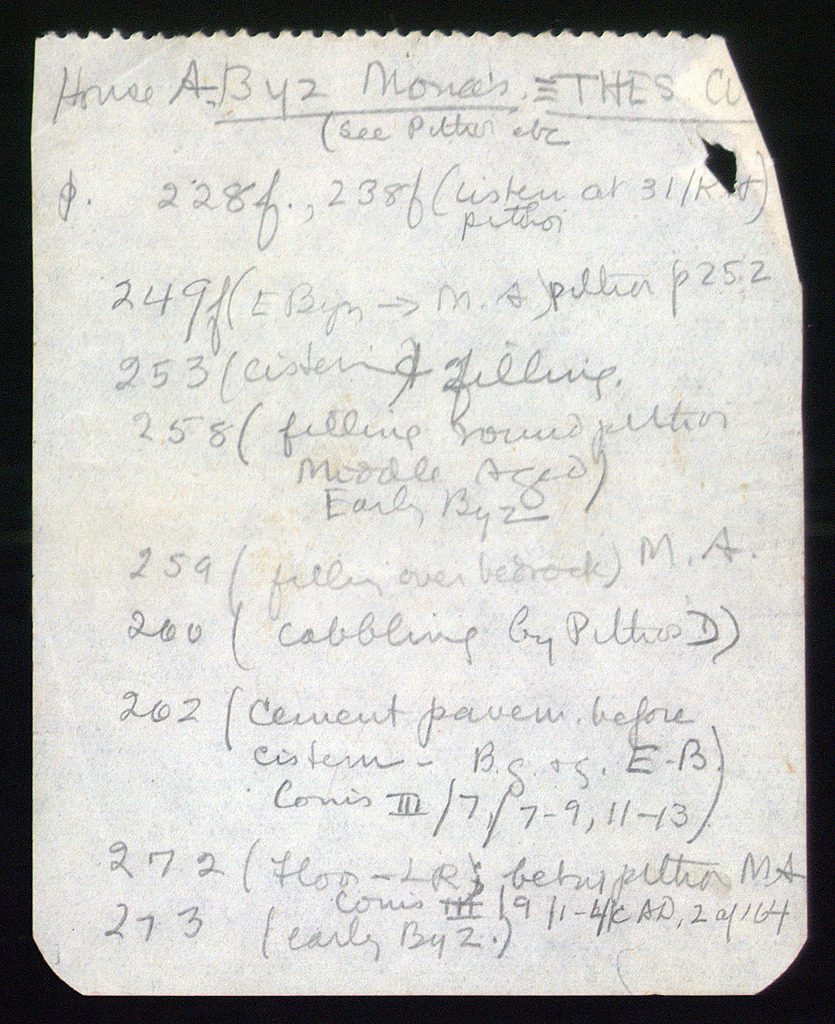 House A-Byz Monas. ≡ THES CU
(see Pithoi etc
p. 228f., 238f (cistern at 31/
pithoi
249f (E Byz → M.A) pithoi p 252
253 (cistern) filling.
258 ( filling round pithoi
Middle Aged)
Early Byz
259 (filling over bedrock) M.A.
260 ( cobbling by Pithos D)
262 (Cement pavem. before
cistern - B.g. + g. E-B)
Conis III /7, / 7-9, 11-13)
272 (Floor - LR; betw pithoi MA
Conis III /9 /1-4/C AD, 2 of 164
273 (early Byz.)